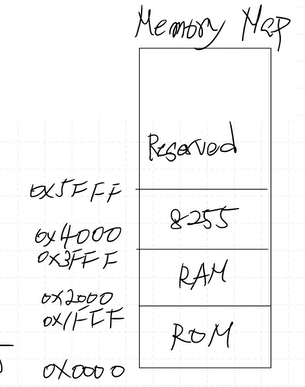 Memory Map
Reserved
0x5FFF
8255
0x4000
0x3FFF
RAM
0x2000
0x1FFF
ROM
0x0000